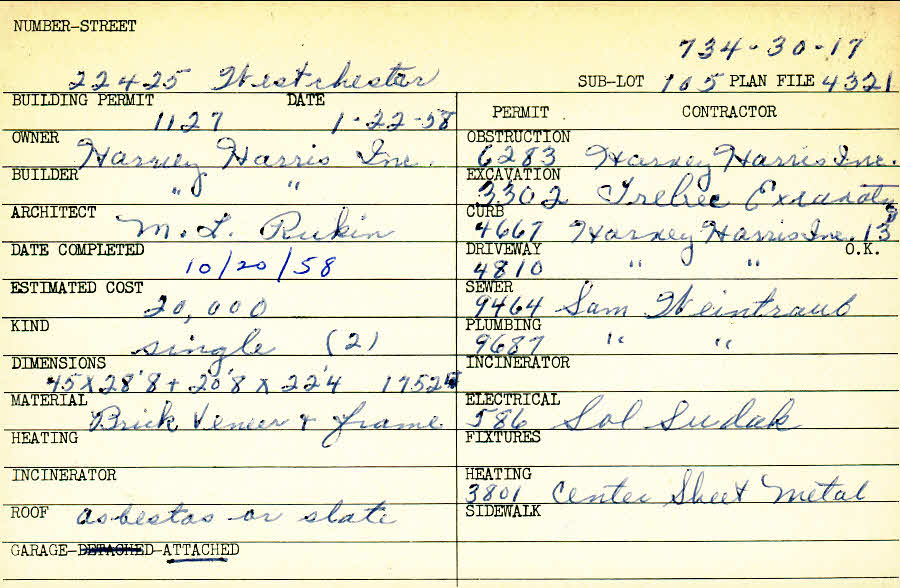 NUMBER-STREET
734-30-17
22425 Westchester SUB-LOT 105 PLAN FILE 4321
BUILDING PERMIT DATE
1127 1-22-58
OWNER Harvey Harris Inc.
BUILDER " "
ARCHITECT M. L. Rukin
DATE COMPLETED 10/20/58
ESTIMATED COST 20,000
KIND single (2)
DIMENSIONS
45 X 28'8 + 20'8 X 22'4
MATERIAL Brick Veneer + frame
HEATING
INCINERATOR
ROOF asbestos or slate
GARAGE-DETACHED-ATTACHED
PERMIT CONTRACTOR
OBSTRUCTION
6283 Harvey Harris Inc.
EXCAVATION
3302
CURB
4667 Harvey Harris Inc. 13"
O.K.
DRIVEWAY
4810 " "
SEWER
9464 Sam Weintraub
PLUMBING
9687 " "
INCINERATOR
ELECTRICAL
586 Sol Sudak
FIXTURES
HEATING
3801 Center Sheet Metal
SIDEWALK